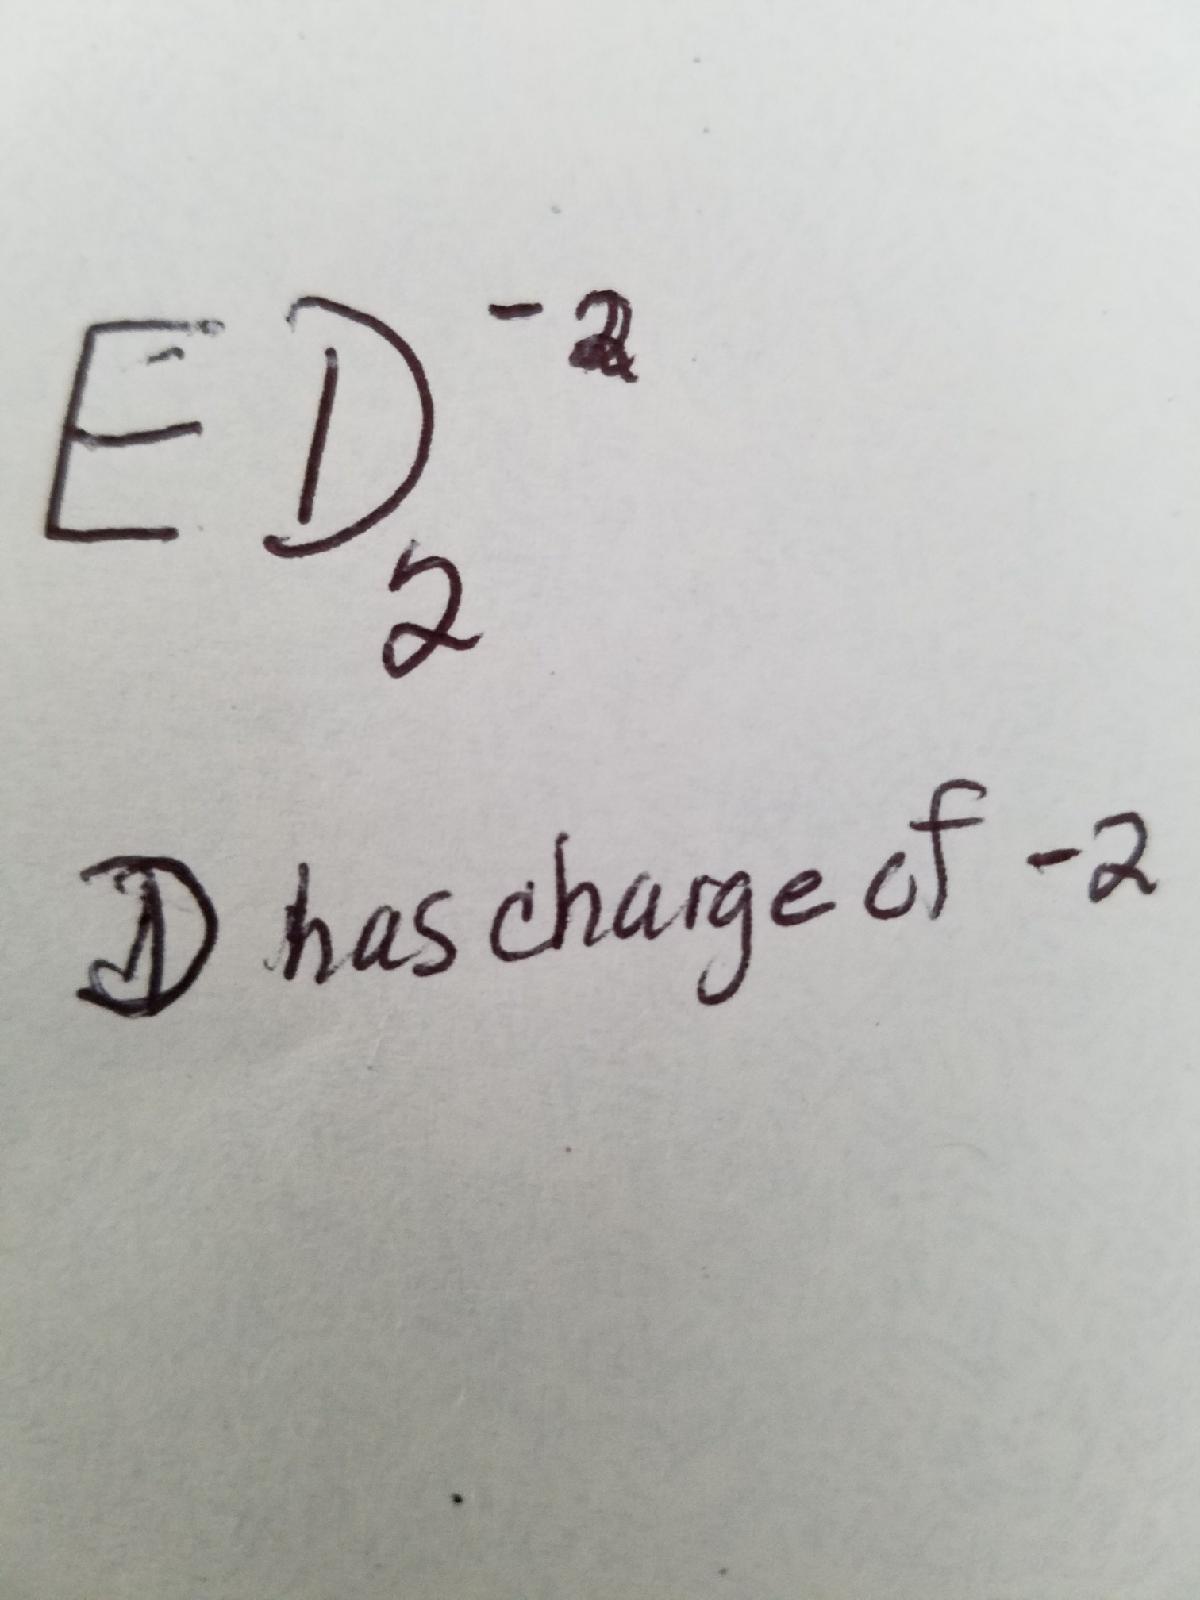 ED₂⁻²
D has charge of -2